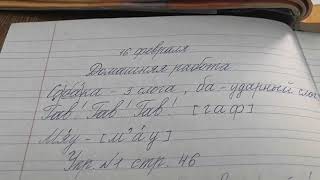 16 февраля
Домашняя работа
Собака - 3 слога, ба - ударный слог
Гав! Гав! Гав! [гаф]
Мяу - [м'ау]
Упр. №1 стр. 46